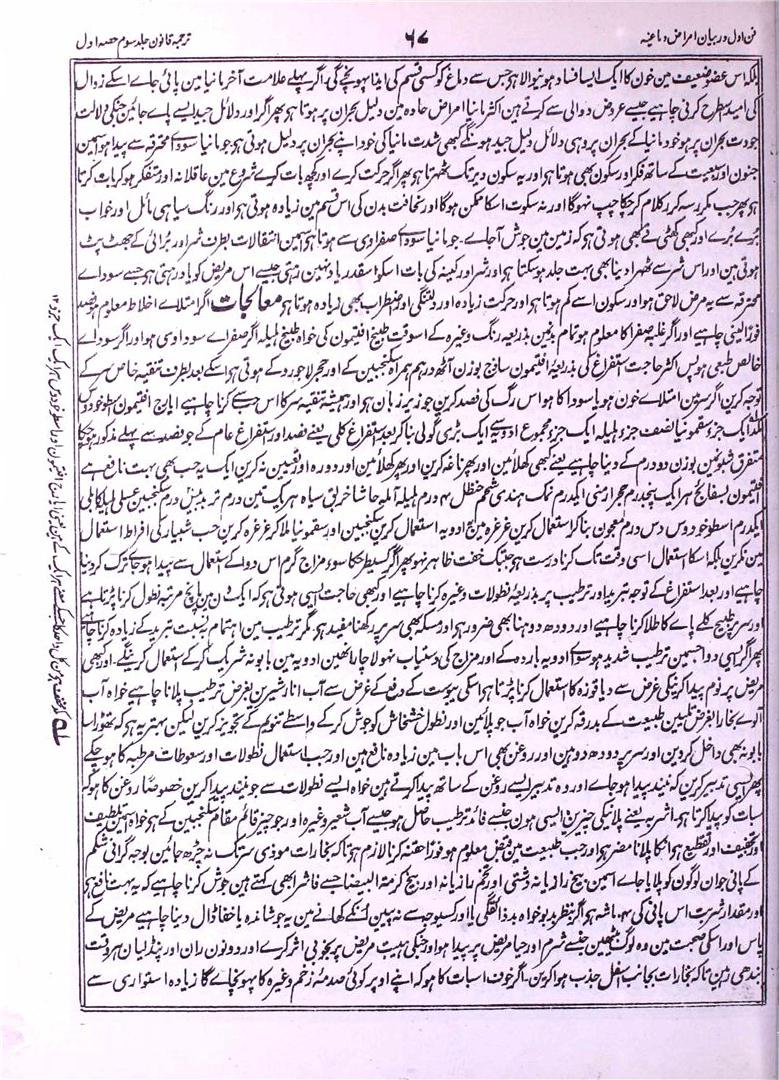 فن اول در بیان امراض دماغیہ ۶۷ ترجمہ قانون جلد سوم حصہ اول
بلکہ اس عضو ضعیف مین خون کا ایک ایسا فساد ہونیوالا ہو جس سے دماغ کو کسی قسم کی ایذا پہونچے گی اگر پہلے علامت آخر مانیا مین پائی جاے اسکے زوال
کی امید اسطرح کرنی چاہیے جیسے عروض دوالی سے کرتے ہین اکثر مانیا امراض حادہ مین دلیل بحران پر ہوتا ہو پھر اگر اور دلائل جید ایسے پاے جائین جنکی دلالت
جودت بحران پر ہو خود مانیا کے بحران پر وہی دلائل دلیل جید ہونگے کبھی شدت مانیا کی خود اپنے بحران پر دلیل ہوتی ہو جو مانیا سوداے محترقہ سے پیدا ہو اسمین
جنون اور سبعیت کے ساتھ فکر اور سکون بھی ہوتا ہو اور یہ سکون دیر تک ٹھہرتا ہو پھر اگر حرکت کرے اور کچھ بات کرے شروع مین عاقلانہ اور متفکر ہو کر بات کرتا
ہو پھر جب مکرر سہ کرر کلام کر چکا چپ نہوگا اور نہ سکوت اسکا ممکن ہوگا اور نحافت بدن کی اس قسم مین زیادہ ہوتی ہو اور رنگ سیاہی مائل اور خواب
بُرے بُرے اور کبھی کھٹی قے بھی ہوتی ہو کہ زمین مین جوش آجاے۔ جو مانیا سوداے صفراوی سے ہوتا ہو اسمین انتقالات بطرف شر اور برائی کے جھٹ پٹ
ہوتی مین اور اس شر سے ٹھہرا دینا بھی بہت جلد ہوسکتا ہو اور شر اور کینہ کی بات اسکو اسقدر یاد نہین رہتی جیسے اس مریض کو یاد رہتی ہو جسے سوداے
محترقہ سے یہ مرض لاحق ہو اور سکون اسے کم ہوتا ہو اور حرکت زیادہ اور دلتنگی اور اضطراب بھی زیادہ ہوتا ہو معالجات اگر امتلاے اخلاط معلوم ہو فصد
فوراً لینی چاہیے اور اگر غلبہ صفرا کا معلوم ہو تمام بدن مین بذریعہ رنگ وغیرہ کے اسوقت طبیخ افتیمون کی خواہ طبیخ ہلیلہ اگر صفراے سوداوی ہو اور اگر سوداے
خالص طبعی ہو پس اکثر حاجت استفراغ کی بذریعہ افتیمون ساذج بوزن آٹھ درہم ہمراہ سکنجبین کے اور حجر لاجورد کے ہوتی ہو اسکے بعد بطرف تنقیہ خاص سر کے
توجہ کرین اگر سر مین امتلاے خون ہو یا سودا کا ہو اس رگ کی فصد کرین جو زیر زبان ہو اور ہمیشہ تنقیہ سر کا اس حب سے کرنا چاہیے ایارج افتیمون سطوخودوس
ہر واحد ایک جزء سقمونیا نصف جزء ہلیلہ ایک جزء مجموع ادویہ سے ایک بڑی گولی بنا کر بعد استفراغ کلی یعنے فصد اور استفراغ عام کے جو فصد سے پہلے مذکور ہو چکا
متفرق شبونمین بوزن دو درم کے دینا چاہیے یعنے کبھی کھلائین اور پھر ناغہ کرین اور پھر کھلائین اور دورہ اور تعیین نہ کرین ایک یہ حب بھی بہت نافع ہے
افتیمون بسفائج ہر ایک پنجدرم حجر ارمنی ایکدرم نمک ہندی شحم حنظل ۴ درم ہلیلہ آملہ حاشا خربق سیاہ ہر ایک تین درم تربد بیس درم سکنجبین عسلی ہلیلہ کابلی
ایکدرم اسطوخودوس دس درم معجون بنا کر استعمال کرین غرغرہ مین بھی ادویہ استعمال کرین سکنجبین اور سقمونیا ملا کر غرغرہ کرین حب شبیار کی افراط استعمال
مین نکرین بلکہ اسکا استعمال اسی وقت تک کرنا درست ہو جبتک خفت ظاہر نہو پھر اگر کسیطرح کا سوء مزاج گرم اس دوا کے استعمال سے پیدا ہو جاے ترک کر دینا
چاہیے اور بعد استفراغ کے توجہ تبرید اور ترطیب پر بذریعہ نطولات وغیرہ کرنا چاہیے اور کبھی حاجت ایسی ہوتی ہو کہ ایک دن مین پانچ مرتبہ نطول کرنا پڑتا ہے
اور سر پر طبیخ کلے پاے کا طلا کرنا چاہیے اور دودھ دوہنا بھی ضرور ہو اور مسکہ بھی سر پر رکھنا مفید ہو مگر ترطیب مین اہتمام بہ نسبت تبرید کے زیادہ کرنا چاہیے
پھر اگر ایسی دوا جسمین ترطیب شدید ہو سواے ادویہ باردہ کے اور مزاج کی دستیاب نہو لاچار انھین ادویہ مین بابونہ شریک کر کے استعمال کرینگے۔ اور کبھی
مریض پر نوم پیدا کرنیکی غرض سے دیاقوزہ کا استعمال کرنا پڑتا ہو اسکی یبوست کے دفع کے غرض سے آب انار شیرین بغرض ترطیب پلانا چاہیے خواہ آب
آلوے بخارا بغرض تلیین طبیعت کے بدرقہ کرین خواہ آب جو پلائین اور نطول خشخاش کو جوش کر کے واسطے تنویم کے تجویز کرین لیکن بہتر یہ ہو کہ تھوڑا سے
بابونہ بھی داخل کر دین اور سر پر دودھ دوہین اور روغن بھی اس باب مین زیادہ نافع ہین اور جب استعمال نطولات اور سعوطات مرطبہ کا ہو چکے
پھر ایسی تدبیر کرین کہ نیند پیدا ہو جاے اور وہ تدبیر ایسے روغن کے ساتھ پیدا کرتے ہین خواہ ایسے نطولات سے جو نیند پیدا کرین خصوصاً روغن کاہو کہ
سبات کو پیدا کرتا ہو اشربہ یعنے پلانیکی چیزین ایسی ہون جنسے فائدہ ترطیب حاصل ہو جیسے آب شعیر وغیرہ اور جو چیز قائم مقام سکنجبین کے ہو خواہ جسمین تلطیف
اور تجفیف اور تقطیع ہو اسکا پلانا مضر ہو اور جب طبیعت مین قبض معلوم ہو فوراً حقنہ کرنا لازم ہو تا کہ بخارات موذی سر تک نہ چڑھ جائین بوجہ گرانی شکم
کے پانی جوان لوگون کو پلایا جاے اسمین بیخ رازیانہ دشتی اور تخم رازیانہ اور بیخ کرمۃ البیضا جسے فاشرا بھی کہتے ہین جوش کرنا چاہیے کہ یہ بہت نافع ہو
اور مقدار شربت اس پانی کی ۴ ماشہ ہو اگر بنظر بدبو خواہ بد ذائقگی یا اور کسیوجہ سے نہ پیین اُنکے کھانے مین یہ جوشاندہ باخفا ڈال دینا چاہیے مریض کے
پاس اور اسکی صحبت مین وہ لوگ بٹھین جنسے شرم اور حیا مریض پر پیدا ہو اور جنکی ہیبت مریض پر بخوبی اثر کرے اور دونون ران اور پنڈلیان ہر وقت
بندھی رہین تا کہ بخارات بجانب اسفل جذب ہوا کرین۔ اگر خوف اسبات کا ہو کہ اپنے اوپر کوئی صدمہ زخم وغیرہ کا پہونچاے گا زیادہ استواری سے